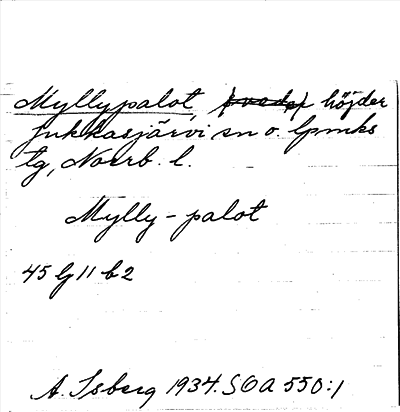 Myllypalot, höjder
Jukkasjärvi sn o. lpmks
tg, Norrb. l.
Mylly-palot
45 G 11 b 2
A. Isberg 1934. SOA 550:1